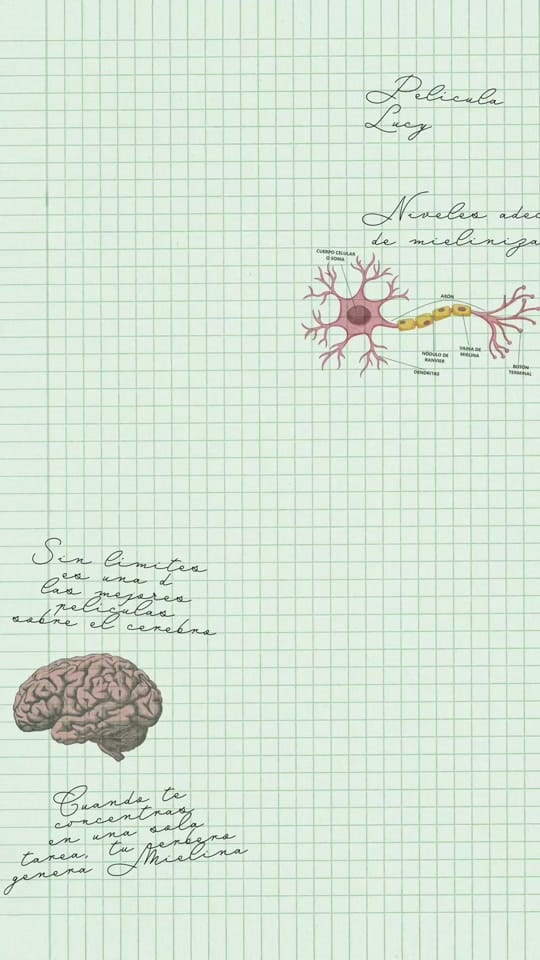 Pelicula
Lucy
Niveles adec
de mieliniza
CUERPO CELULAR
O SOMA
AXÓN
NÓDULO DE
RANVIER
VAINA DE
MIELINA
DENDRITAS
BOTÓN
TERMINAL
Sin limites
es una d
las mejores
peliculas
sobre el cerebro
Cuando te
concentras
en una sola
tarea, tu cerbero
genera Mielina